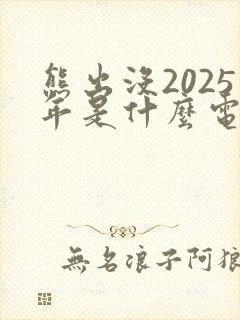 熊出沒2025
年是什麼電
無名浪子阿狼